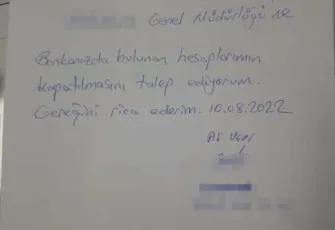 Genel Müdürlüğü'ne
Bankanızda bulunan hesaplarımın
kapatılmasını talep ediyorum.
Gereğini rica ederim. 10.08.2022